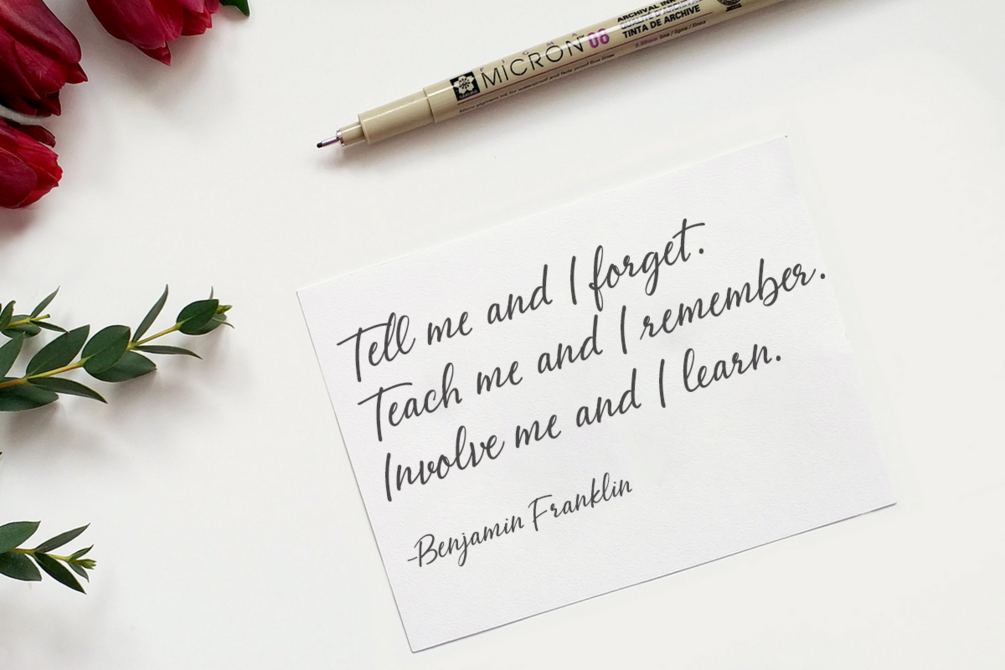 MICRON 08
ARCHIVAL INK
TINTA DE ARCHIVE
Tell me and I forget.
Teach me and I remember.
Involve me and I learn.
-Benjamin Franklin